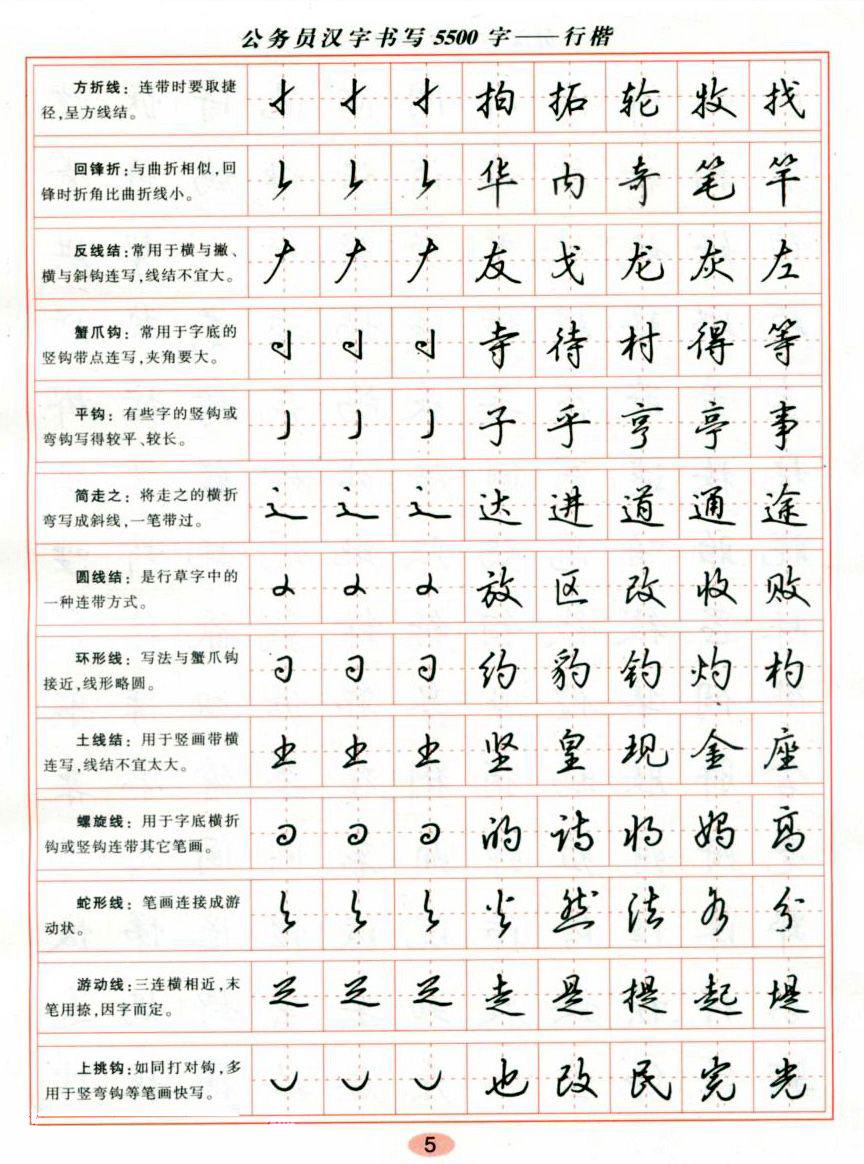 公务员汉字书写 5500 字——行楷
方折线：连带时要取捷
径,呈方线结。
拍 拓 轮 牧 找
回锋折:与曲折相似,回
锋时折角比曲折线小。
华 内 奇 笔 竿
反线结:常用于横与撇、
横与斜钩连写,线结不宜大。
友 戈 龙 灰 左
蟹爪钩：常用于字底的
竖钩带点连写,夹角要大。
寺 待 村 得 等
平钩：有些字的竖钩或
弯钩写得较平、较长。
子 乎 亨 亭 事
简走之：将走之的横折
弯写成斜线,一笔带过。
达 进 道 通 途
圆线结：是行草字中的
一种连带方式。
放 区 改 收 败
环形线：写法与蟹爪钩
接近,线形略圆。
约 豹 钓 灼 杓
土线结：用于竖画带横
连写,线结不宜太大。
坚 皇 现 金 座
螺旋线：用于字底横折
钩或竖钩连带其它笔画。
的 诗 妈 高
蛇形线：笔画连接成游
动状。
然 法 分
游动线:三连横相近,末
笔用捺,因字而定。
走 是 提 起 堤
上挑钩:如同打对钩,多
用于竖弯钩等笔画快写。
也 改 民 完 光
5